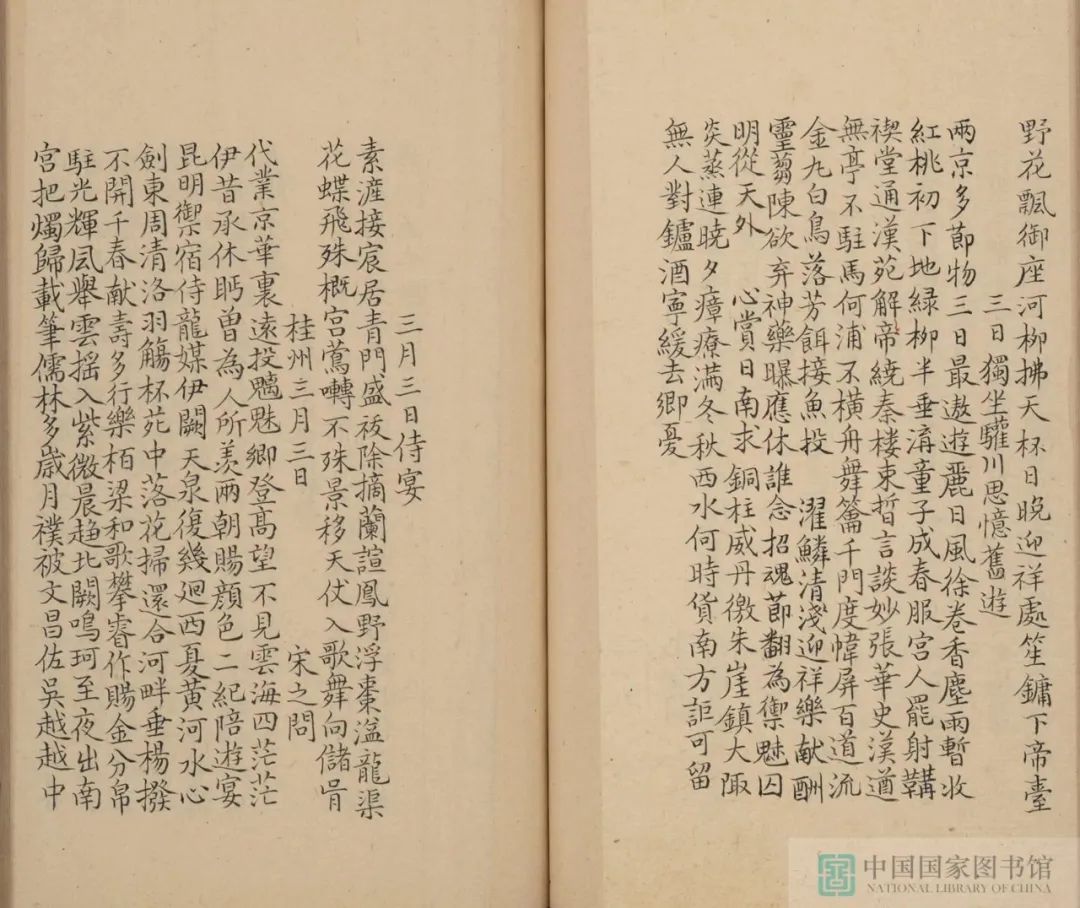 野花飄御座河柳拂天杯日晚迎祥處笙鏞下帝臺
三日獨坐驩川思憶舊遊
兩京多節物三日最遨遊麗日風徐卷香塵雨暫收
紅桃初下地綠柳半垂溝童子成春服宮人罷射鞲
禊堂通漢苑解帝繞秦樓束晳言談妙張華史漢遒
無亭不駐馬何浦不橫舟舞籥千門度幃屏百道流
金丸白鳥落芳餌接魚投 濯鱗清淺迎祥樂献酬
靈蒭陳欲弃神樂曝應休誰念招魂節翻為禦魅囚
明從天外 心賞日南求銅柱威丹徼朱崖鎮大陬
炎蒸連曉夕瘴癘滿冬秋西水何時貸南方詎可留
無人對鑪酒寧緩去鄉憂
三月三日侍宴
素滻接宸居青門盛祓除摘蘭諠鳳野浮棗溢龍渠
花蝶飛殊概宮鶯囀不殊景移天仗入歌舞向儲胥
桂州三月三日 宋之問
代業京華裏遠投魑魅鄉登高望不見雲海四茫茫
伊昔承休眄曾為人所羨兩朝賜顏色二紀陪遊宴
昆明禦宿侍龍媒伊闕天泉復幾廻西夏黃河水心
劍東周清洛羽觴杯苑中落花掃還合河畔垂楊撥
不開千春献壽多行樂栢梁和歌攀睿作賜金分帛
駐光輝風舉雲搖入紫微晨趋北闕鳴珂至夜出南
宮把燭歸載筆儒林多歲月襆被文昌佐吳越越中
中国国家图书馆
NATIONAL LIBRARY OF CHINA